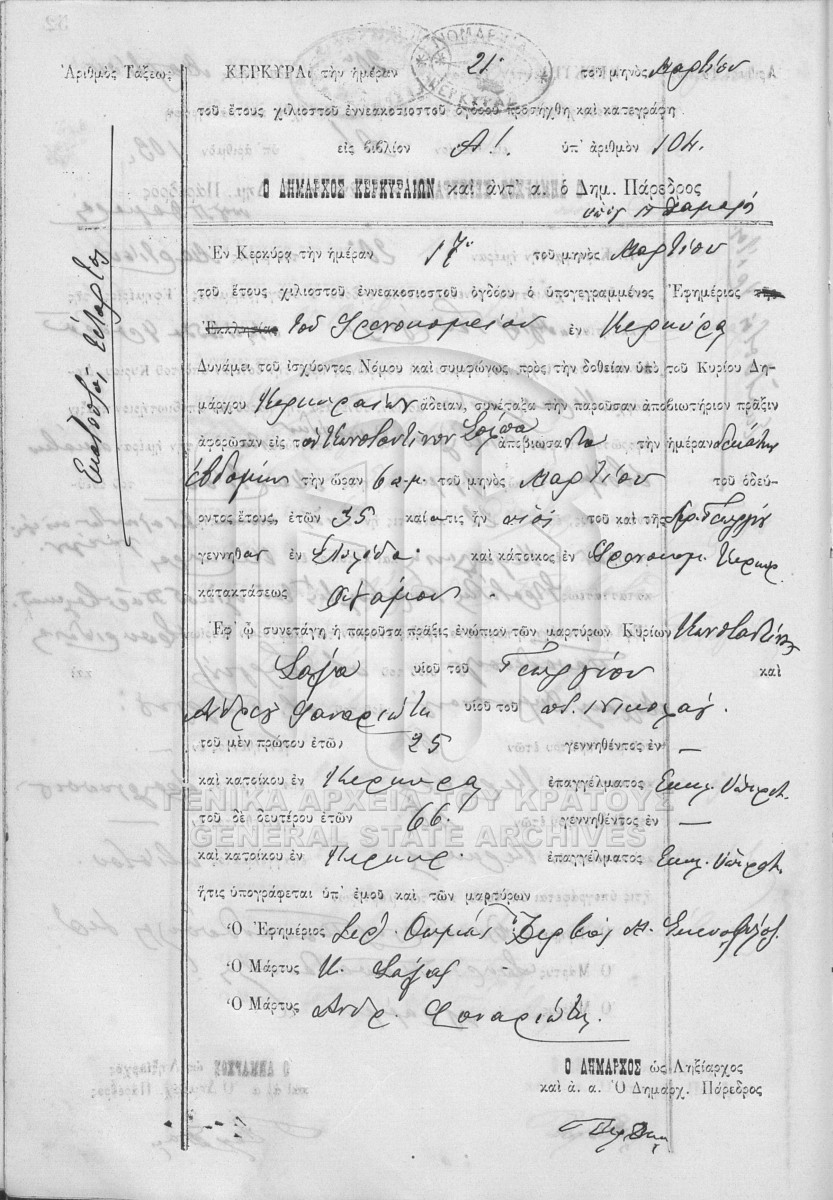 ΝΟΜΑΡΧΙΑ ΚΕΡΚΥΡΑΣ
Ἀριθμὸς Τάξεως
ΚΕΡΚΥΡΑι τὴν ἡμέραν 21 τοῦ μηνὸς Μαρτίου
τοῦ ἔτους χιλιοστοῦ ἐννεακοσιοστοῦ ὀγδόου προσήχθη καὶ κατεγράφη
εἰς βιβλίον Α! ὑπ' ἀριθμὸν 104.
Ο ΔΗΜΑΡΧΟΣ ΚΕΡΚΥΡΑΙΩΝ καὶ ἀντ' α. ὁ Δημ. Πάρεδρος
Ἑκατοστὸς τέταρτος
Ἐν Κερκύρᾳ τὴν ἡμέραν 17 τοῦ μηνὸς Μαρτίου
τοῦ ἔτους χιλιοστοῦ ἐννεακοσιοστοῦ ὀγδόου ὁ ὑπογεγραμμένος Ἐφημέριος τῆς
Ἐκκλησίας τοῦ Φρενοκομείου ἐν Κερκύρᾳ
Δυνάμει τοῦ ἰσχύοντος Νόμου καὶ συμφώνως πρὸς τὴν δοθεῖσαν ὑπὸ τοῦ Κυρίου Δη-
μάρχου Κερκυραίων ἄδειαν, συνέταξα τὴν παροῦσαν ἀποβιωτήριον πρᾶξιν
ἀφορῶσαν εἰς τὸν Κωνσταντῖνον ἀποβιώσαντα τὴν ἡμέραν δεκάτην
ἑβδόμην τὴν ὥραν 6 π.μ. τοῦ μηνὸς Μαρτίου τοῦ ὁδεύ-
οντος ἔτους, ἐτῶν 35 καὶ ὅτις ἦν υἱὸς τοῦ καὶ τῆς Γεωργίου
γεννηθεὶς ἐν καὶ κάτοικος ἐν Φρενοκομ. Κερκύρ.
κατακτάσεως ἀγάμου
Ἐφ' ᾧ συνετάγη ἡ παροῦσα πρᾶξις ἐνώπιον τῶν μαρτύρων Κυρίων Κωνσταντίνου
Σάλμα υἱοῦ τοῦ Γεωργίου καὶ
Ἀνδρέου Φαναριώτη υἱοῦ τοῦ ποτ. Νικολάου.
τοῦ μὲν πρώτου ἐτῶν 25 γεννηθέντος ἐν —
καὶ κατοίκου ἐν Κερκύρᾳ ἐπαγγέλματος Ἐκκλ. Ὑπηρέτ.
ΓΕΝΙΚΑ ΑΡΧΕΙΑ ΤΟΥ ΚΡΑΤΟΥΣ
τοῦ δὲ δευτέρου ἐτῶν 66 γεννηθέντος ἐν —
GENERAL STATE ARCHIVES
καὶ κατοίκου ἐν Κερκύρ. ἐπαγγέλματος Ἐκκλ. Ὑπηρέτ.
ἥτις ὑπογράφεται ὑπ' ἐμοῦ καὶ τῶν μαρτύρων
Ὁ Ἐφημέριος Θωμᾶς
Ὁ Μάρτυς Κ.
Ὁ Μάρτυς Ἀνδρ. Φαναριώτης
Ο ΔΗΜΑΡΧΟΣ ὡς Ληξίαρχος
καὶ ἀ. α. Ὁ Δημαρχ. Πάρεδρος